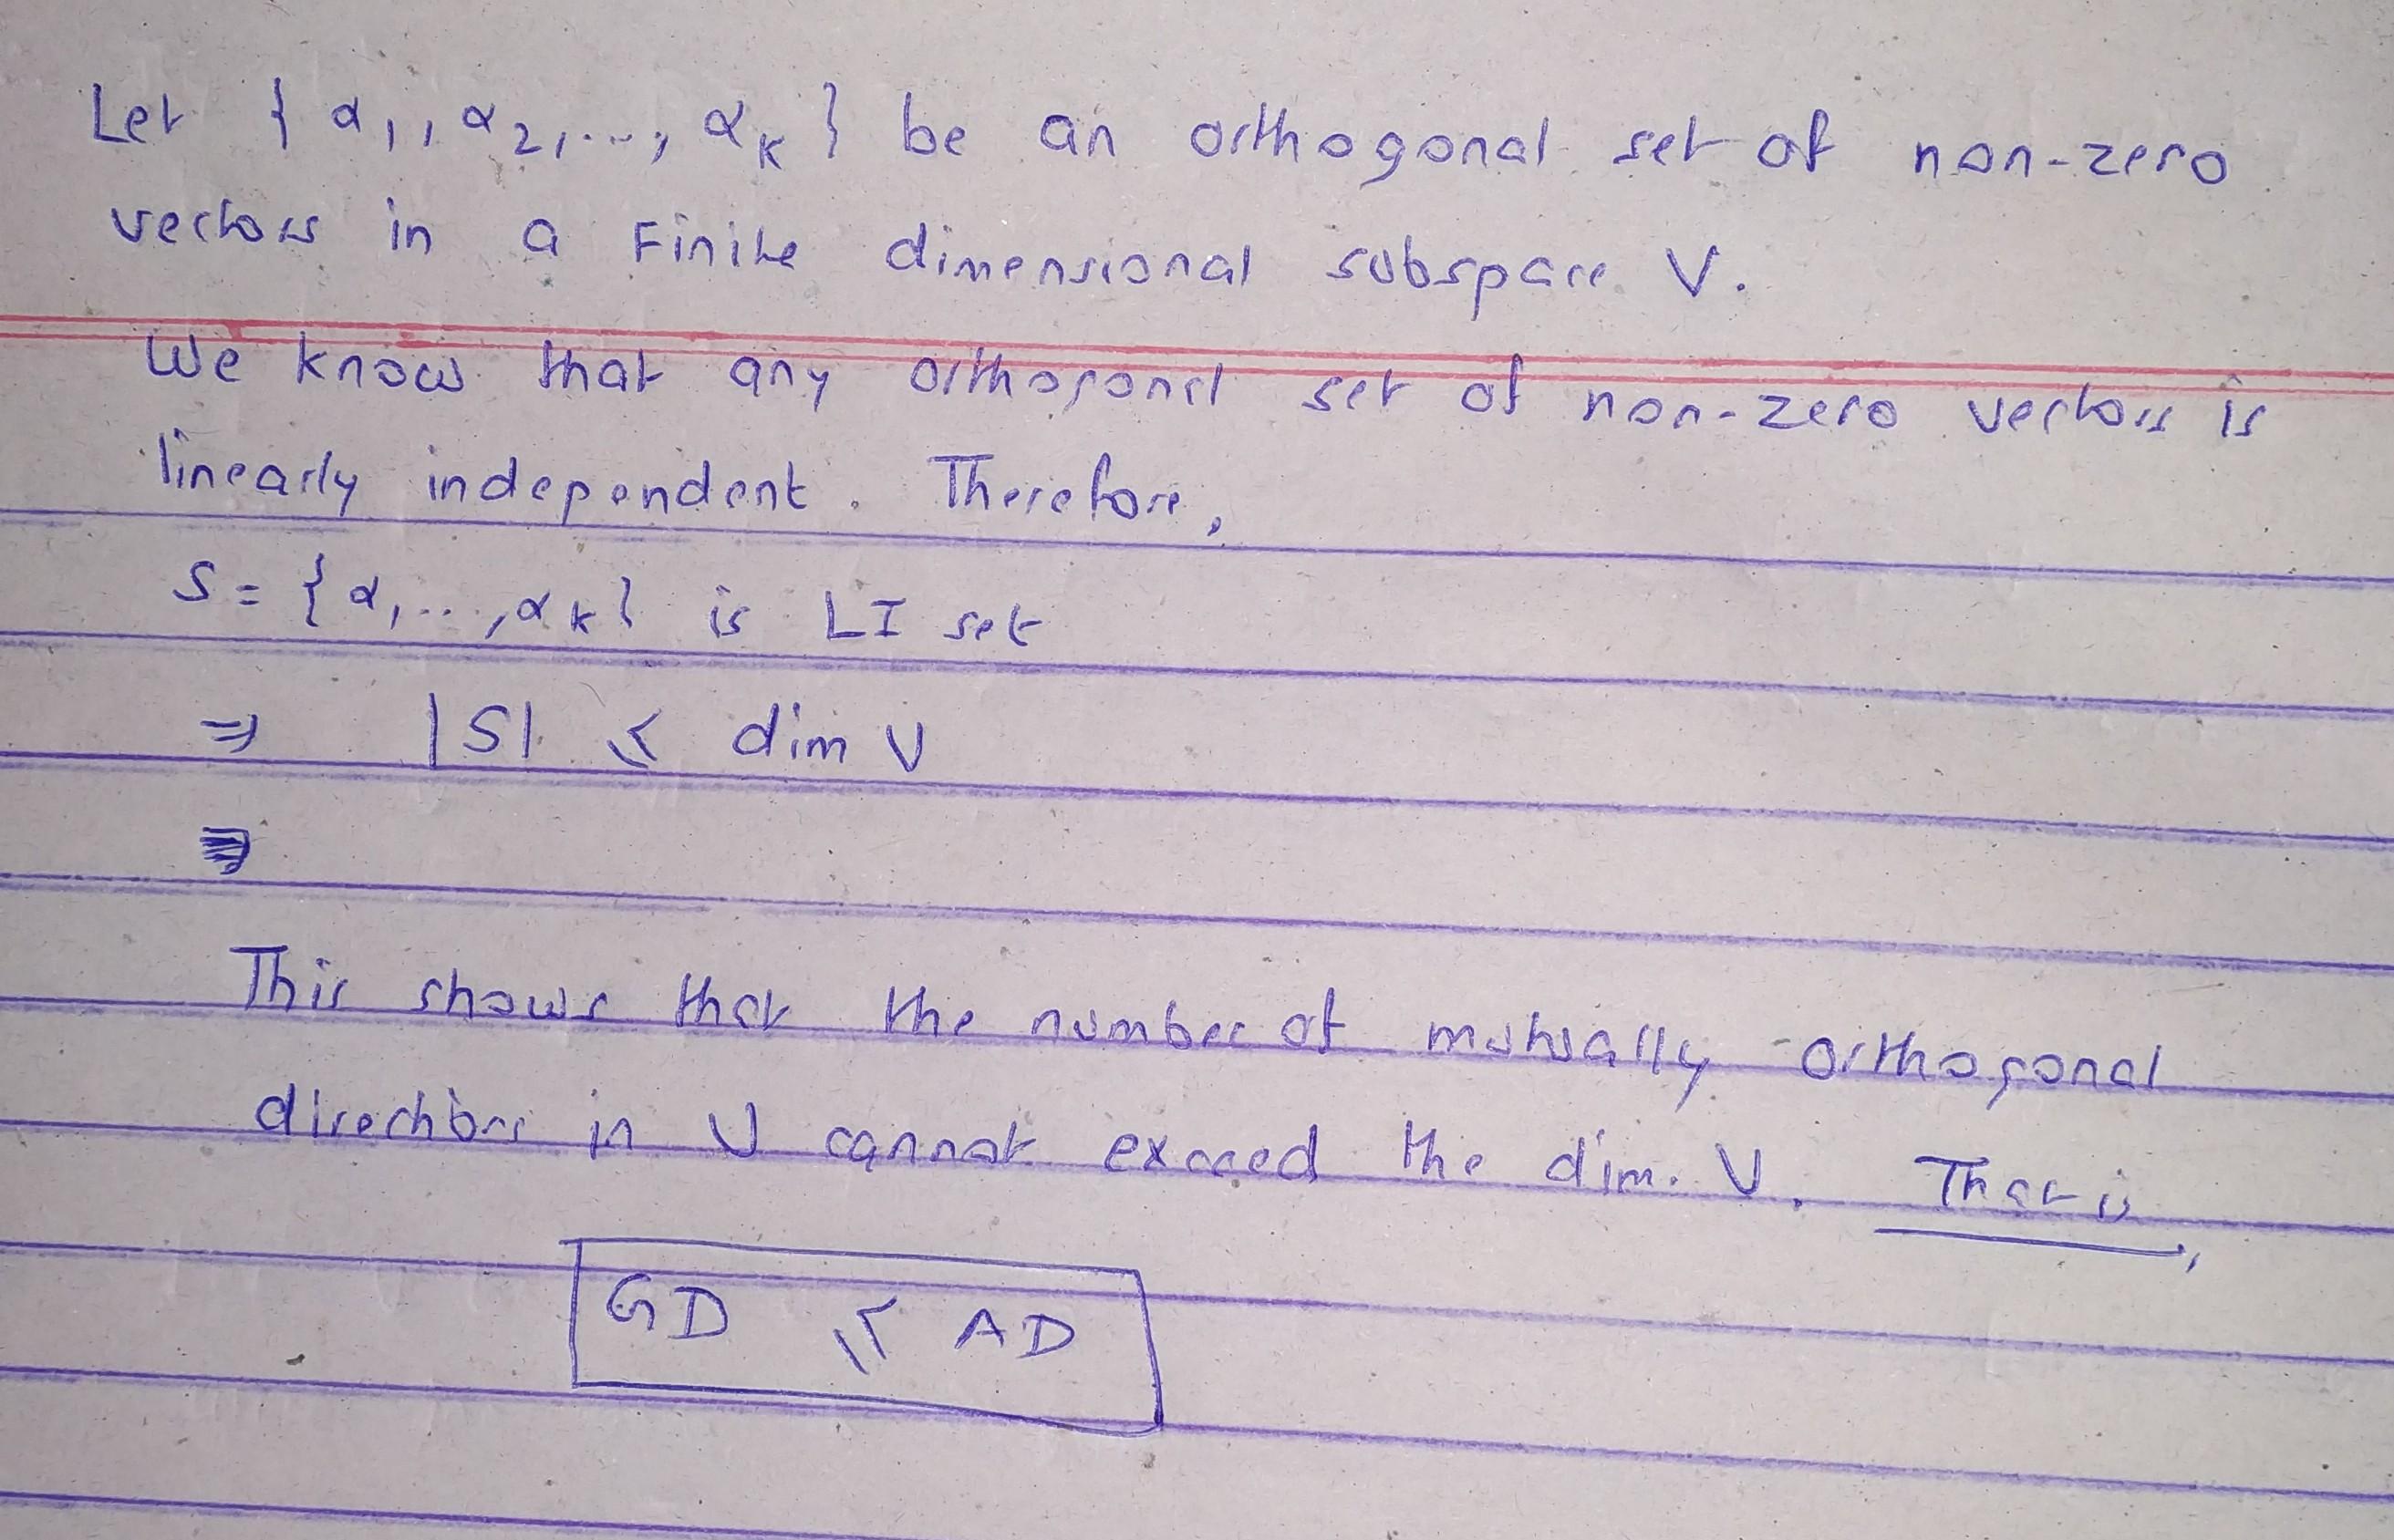 Let { α₁, α₂, ..., αₖ } be an orthogonal set of non-zero
vectors in a Finite dimensional subspace V.
We know that any orthogonal set of non-zero vectors is
linearly independent. Therefore,
S = { α₁, ..., αₖ } is LI set
⇒ |S| ≤ dim V
⇒
This shows that the number of mutually orthogonal
directions in V cannot exceed the dim. V. That is,
GD ≤ AD